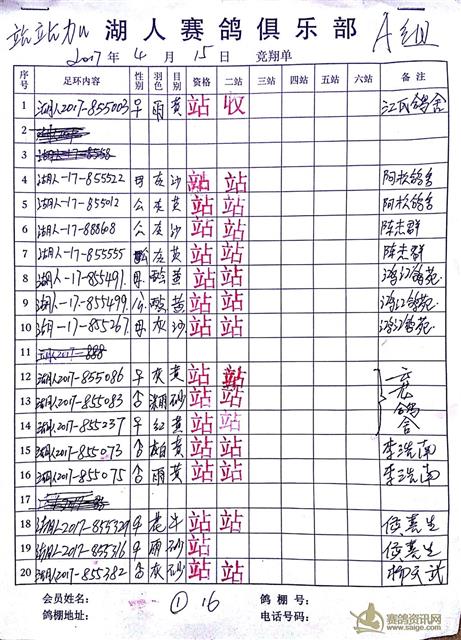 站站加 湖人赛鸽俱乐部 A组
2017年 4月 15日 竞翔单
序号 足环内容 性别 羽色 目别 资格 二站 三站 四站 五站 六站 备注
1 湖人2017-855003 早 雨 黄 站 收 江氏鸽舍
2
3
4 湖人-17-855522 母 灰 沙 站 站 阿松鸽舍
5 湖人-17-855012 公 灰 黄 站 站 阿松鸽舍
6 湖人-17-888608 公 灰 沙 站 站 陈志群
7 湖人-17-855555 灰 黄 站 站 陈志群
8 湖人-17-855491 母 黄 站 站 鸿江鸽苑
9 湖人-17-855499 公 黄 站 站 鸿江鸽苑
10 湖人-17-855267 母 灰 沙 站 站 鸿江鸽苑
11
12 湖人2017-855086 早 灰 黄 站 站
13 湖人2017-855083 合 深雨 砂 站 站
14 湖人2017-855237 早 红 黄 站 站
鸽舍
15 湖人2017-855073 合 黄 站 站 李浩南
16 湖人2017-855075 合 雨 黄 站 站 李浩南
17
18 湖人2017-855329 早 花 牛 站 站 侯嘉生
19 湖人2017-855316 早 雨 砂 站 侯嘉生
20 湖人2017-855382 合 灰 砂 站 站 柳天武
会员姓名: ① 16 鸽棚号:
鸽棚地址: 电话号码:
赛鸽资讯网
www.saige.com